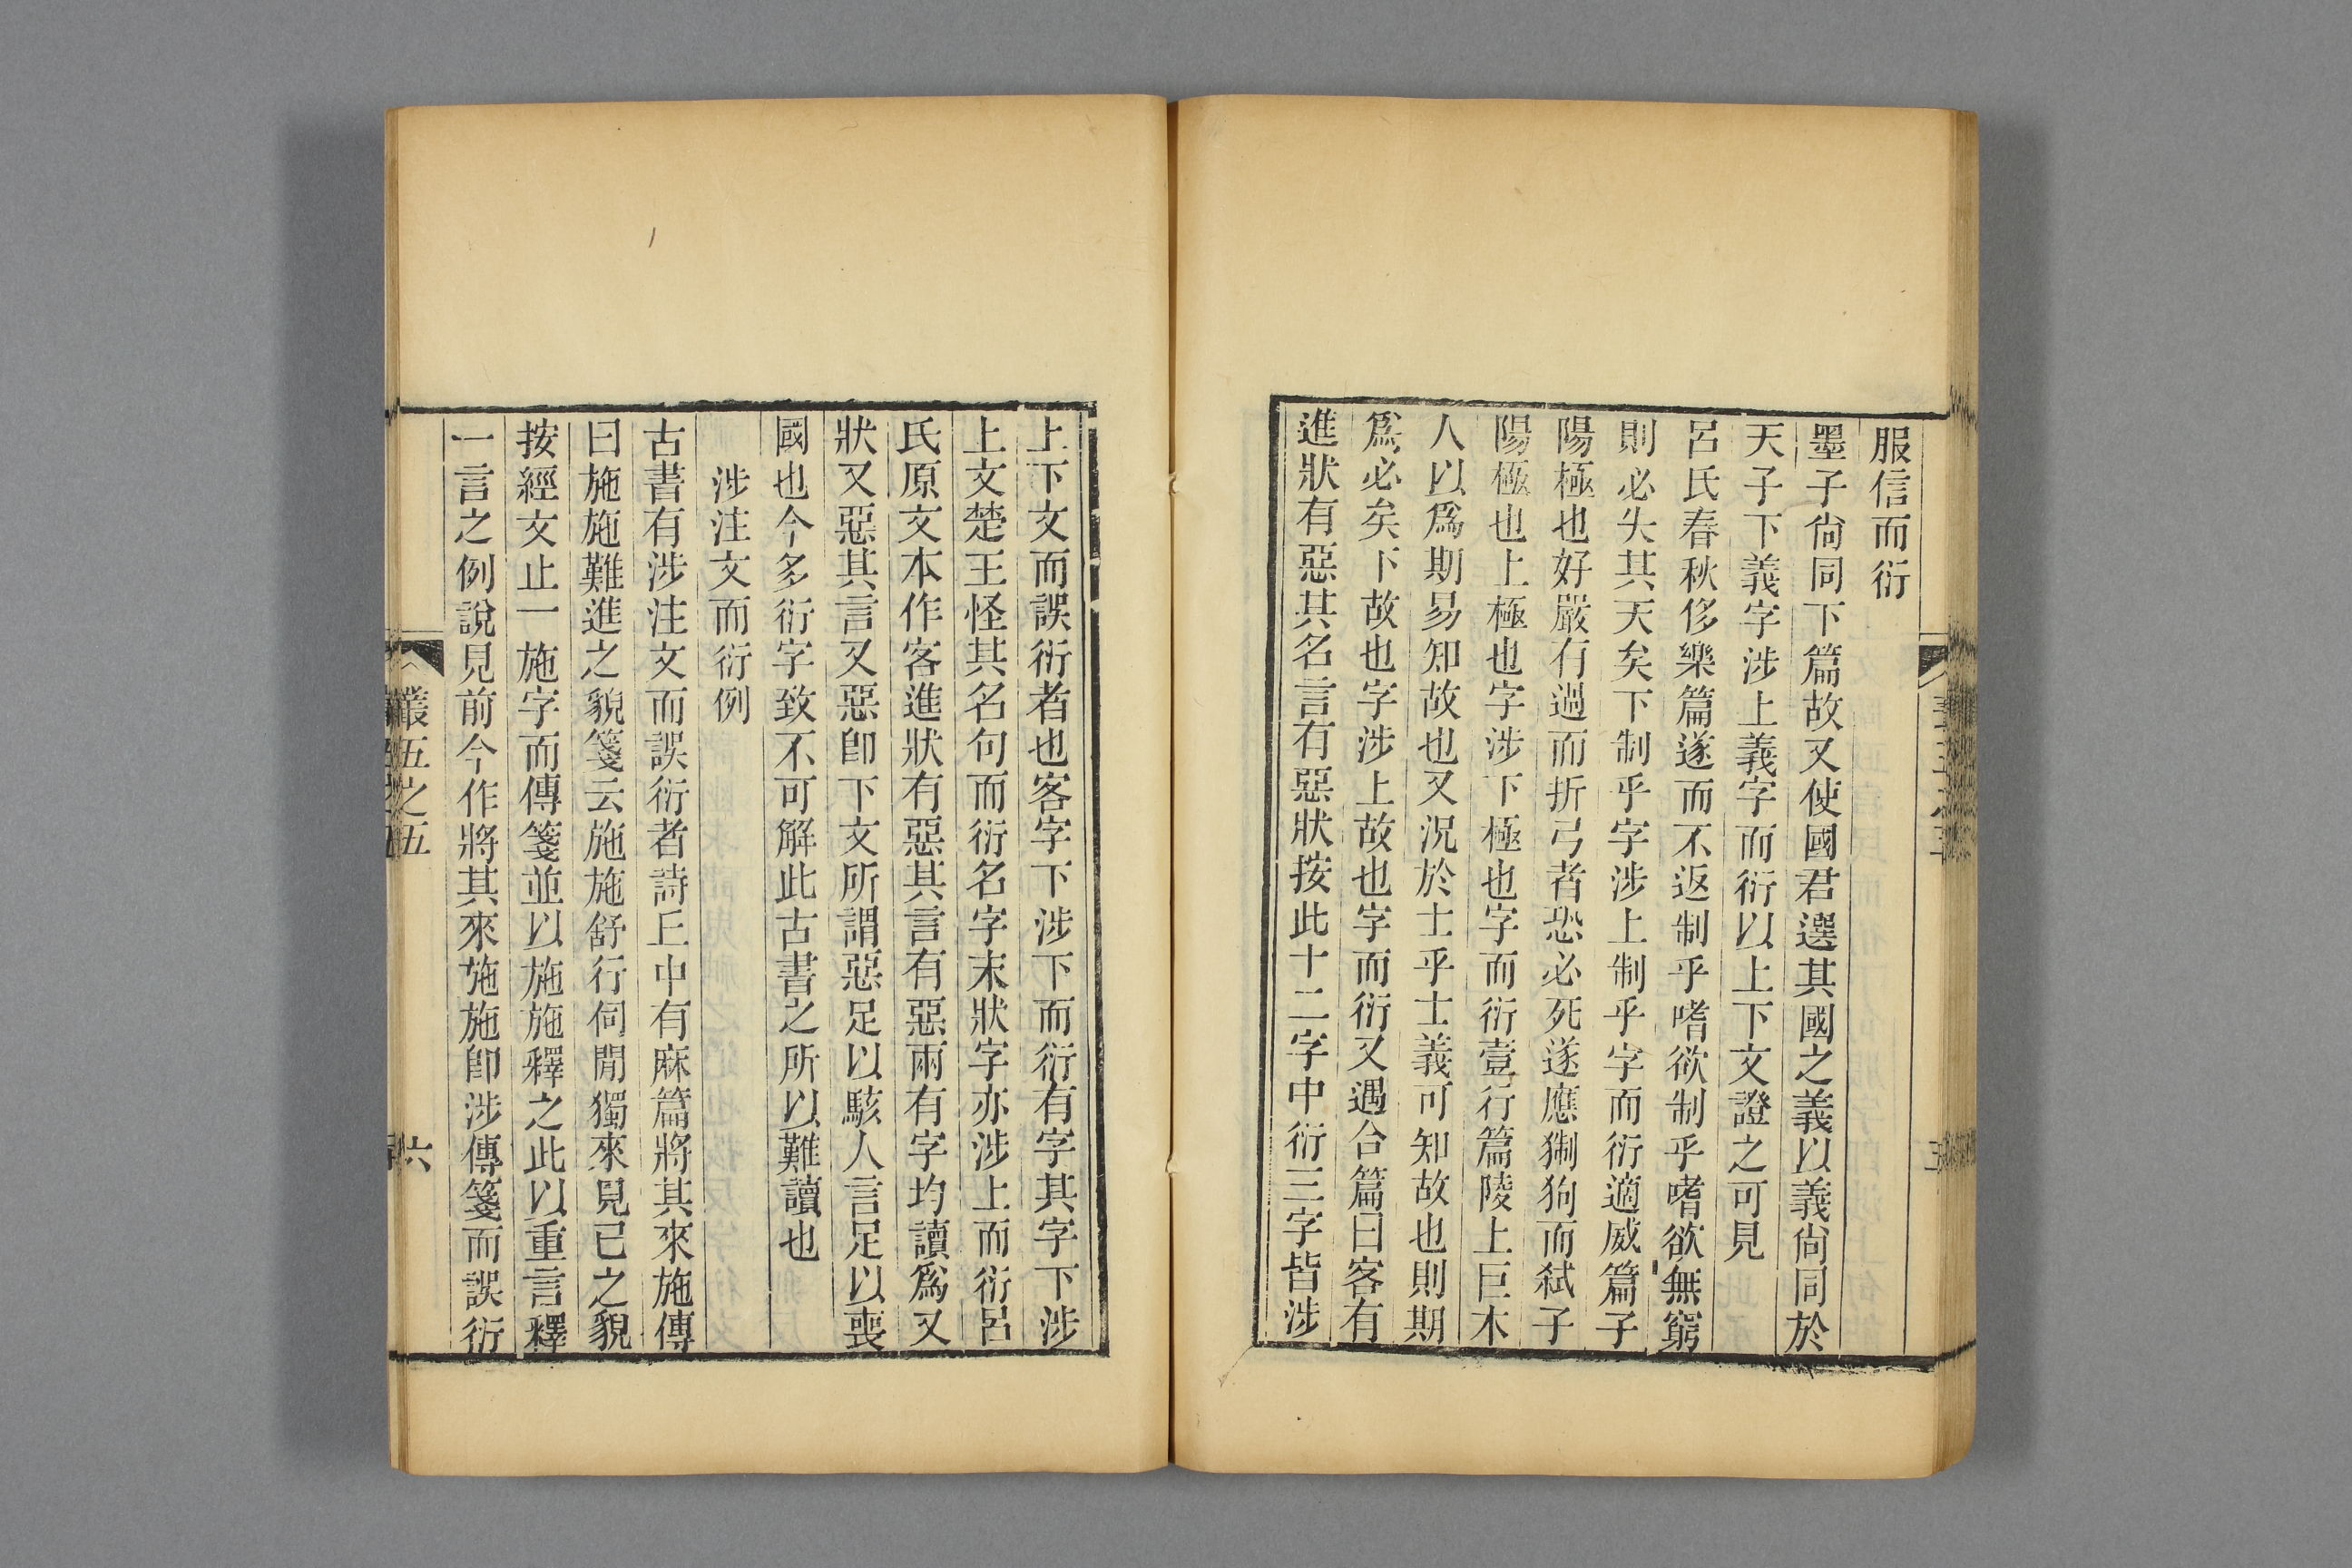 服信而衍
墨子尙同下篇故又使國君選其國之義以義尙同於
天子下義字涉上義字而衍以上下文證之可見
呂氏春秋侈樂篇遂而不返制乎嗜欲制乎嗜欲無窮
則必失其天矣下制乎字涉上制乎字而衍適威篇子
陽極也好嚴有過而折弓者恐必死遂應猘狗而弑子
陽極也上極也字涉下極也字而衍壹行篇陵上巨木
人以爲期易知故也又況於士乎士義可知故也則期
爲必矣下故也字涉上故也字而衍又遇合篇曰客有
進狀有惡其名言有惡狀按此十二字中衍三字皆涉
上下文而誤衍者也客字下涉下而衍有字其字下涉
上文楚王怪其名句而衍名字末狀字亦涉上而衍呂
氏原文本作客進狀有惡其言有惡兩有字均讀爲又
狀又惡其言又惡卽下文所謂惡足以駭人言足以喪
國也今多衍字致不可解此古書之所以難讀也
涉注文而衍例
古書有涉注文而誤衍者詩丘中有麻篇將其來施傳
曰施施難進之貌箋云施施舒行伺閒獨來見已之貌
按經文止一施字而傳箋並以施施釋之此以重言釋
一言之例說見前今作將其來施施卽涉傳箋而誤衍
叢五之五
六